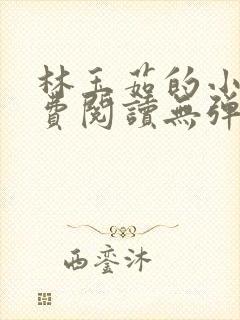 林玉茹的小
費閱讀無彈
西鸾沐